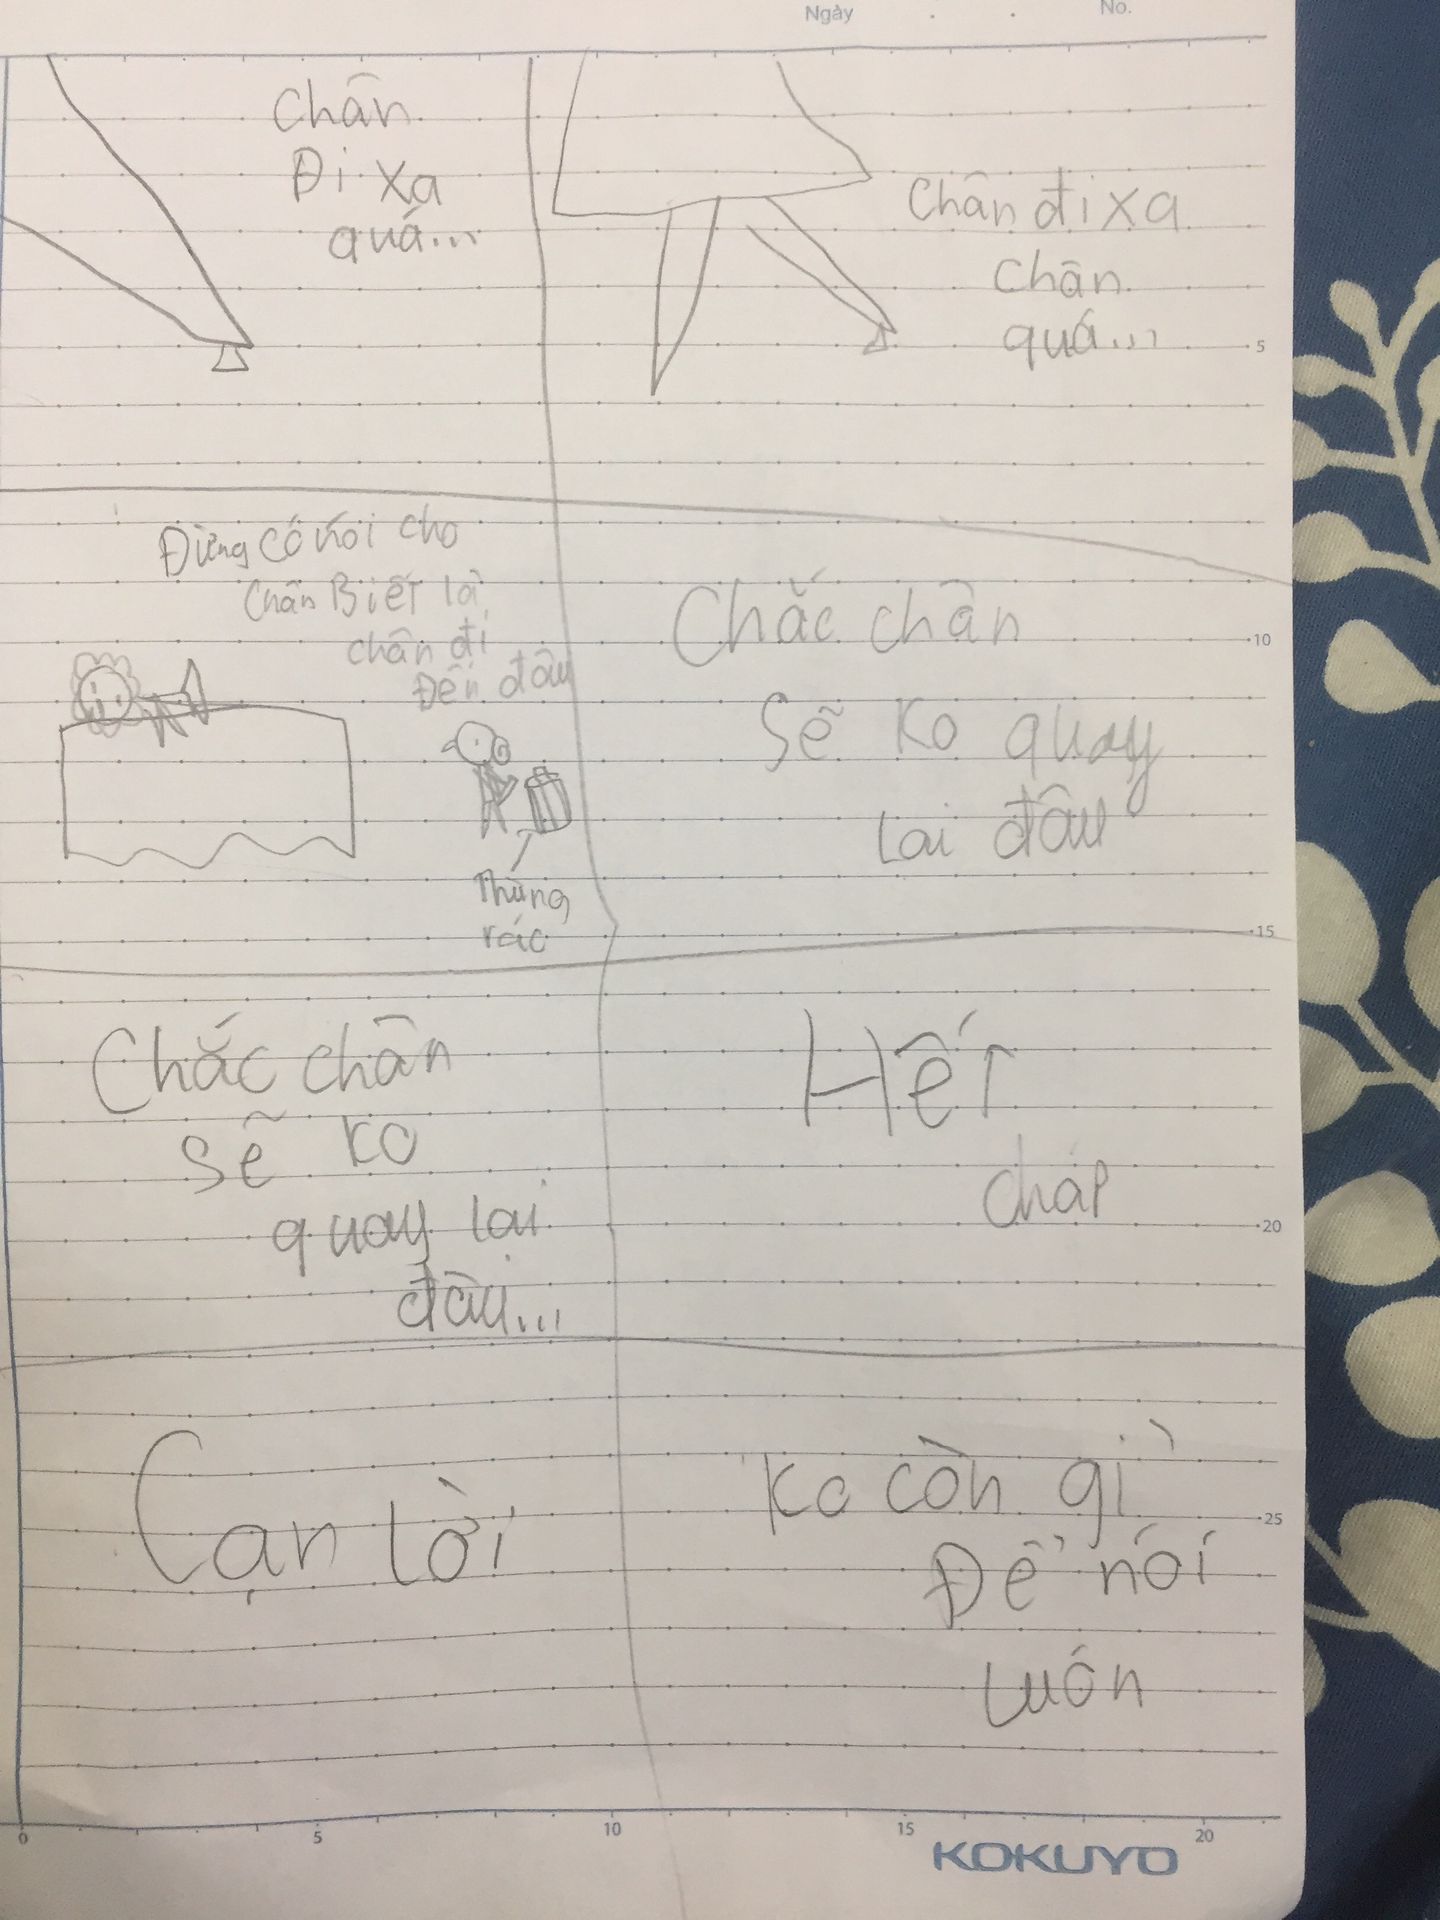 Ngày
No.
Chân
Đi xa
quá...
Chân đi xa
Chân
quá...
5
Đừng có nói cho
Chân Biết là
chân đi
Đến đâu
Thùng
rác
Chắc chân
Sẽ Ko quay
lại đâu
10
15
Chắc chân
Sẽ Ko
quay lại
đâu...
Hết
cháp
20
Cạn lời
Ko còn gì
Để nói
Luôn
25
0 5 10 15 20
KOKUYO